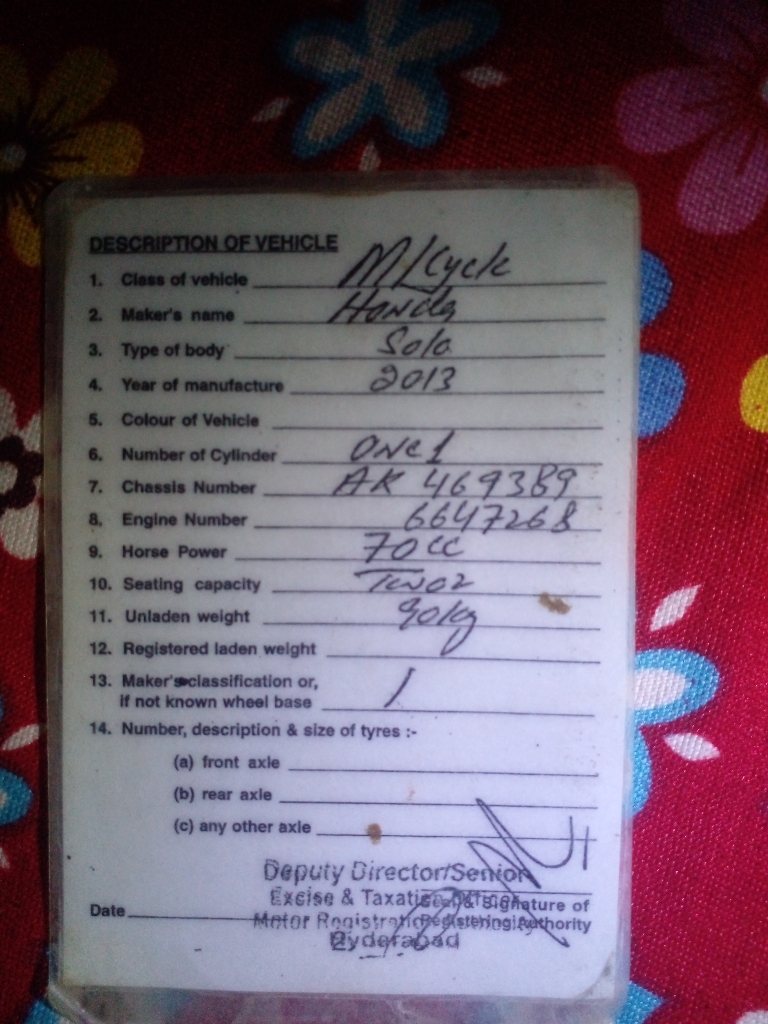 DESCRIPTION OF VEHICLE
1. Class of vehicle M/Cycle
2. Maker's name Honda
3. Type of body Solo
4. Year of manufacture 2013
5. Colour of Vehicle
6. Number of Cylinder One 1
7. Chassis Number AK 469389
8. Engine Number 6647268
9. Horse Power 70cc
10. Seating capacity Two 2
11. Unladen weight 90kg
12. Registered laden weight
13. Maker's classification or,
if not known wheel base /
14. Number, description & size of tyres :-
(a) front axle
(b) rear axle
(c) any other axle
Deputy Director/Senior
Excise & Taxation Officer
Seal & Signature of
Date
Motor Registration
Registering Authority
Hyderabad